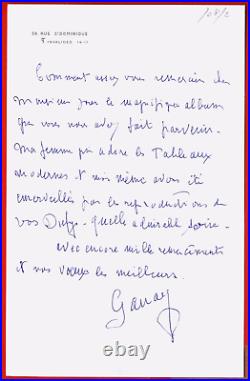 59 RUE ST DOMINIQUE
INVALIDES 14-17
Comment assez vous remercier cher
Monsieur pour le magnifique album
que vous nous avez fait parvenir.
Ma femme qui adore les Tableaux
modernes et moi même avons été
émerveillés par les reproductions de
vos Dufy. quelle admirable
avec encore mille remerciements
et nos vœux les meilleurs.
Ganay
www.collectibleshistory.com